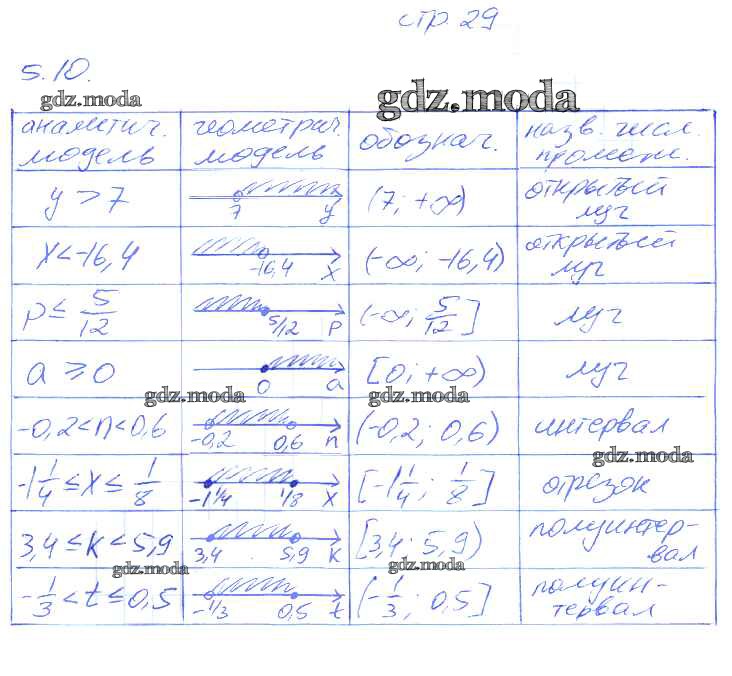 стр. 29
5.10.
gdz.moda
gdz.moda
аналитич. модель геометрич. модель обознач. назв. числ. промеж.
y > 7 7 y (7; +∞) открытый луч
x < -16,4 -16,4 x (-∞; -16,4) открытый луч
p ≤ 5/12 5/12 p (-∞; 5/12] луч
a ≥ 0 0 a [0; +∞) луч
gdz.moda gdz.moda
-0,2 < n < 0,6 -0,2 0,6 n (-0,2; 0,6) интервал
gdz.moda
-1 1/4 ≤ x ≤ 1/8 -1 1/4 1/8 x [-1 1/4; 1/8] отрезок
3,4 ≤ k < 5,9 3,4 5,9 k [3,4; 5,9) полуинтер-вал
gdz.moda gdz.moda
-1/3 < t ≤ 0,5 -1/3 0,5 t (-1/3; 0,5] полуин-тервал